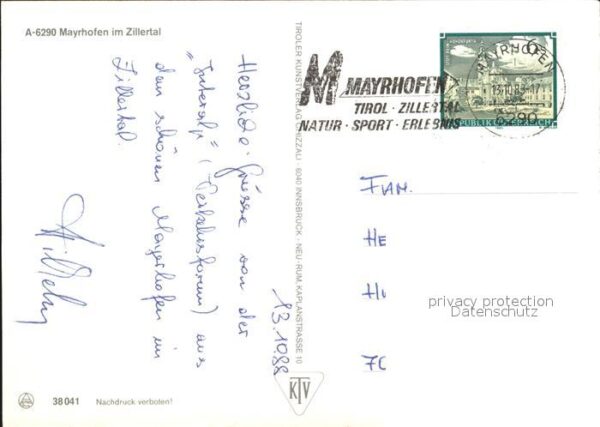 A-6290 Mayrhofen im Zillertal
13.10.88
Herzliche Grüsse von der
"Interalp" (Verkehrsforum) aus
dem schönen Mayerhofen im
Zillertal.
TIROLER KUNSTVERLAG CHIZZALI · 6040 INNSBRUCK - NEU-RUM, KAPLANSTRASSE 10
KTV
M MAYRHOFEN
TIROL · ZILLERTAL
NATUR · SPORT · ERLEBNIS
MAYRHOFEN
13.10.88-17
6290
REPUBLIK ÖSTERREICH
FAM.
HE
HU
70
privacy protection
Datenschutz
38041 Nachdruck verboten!